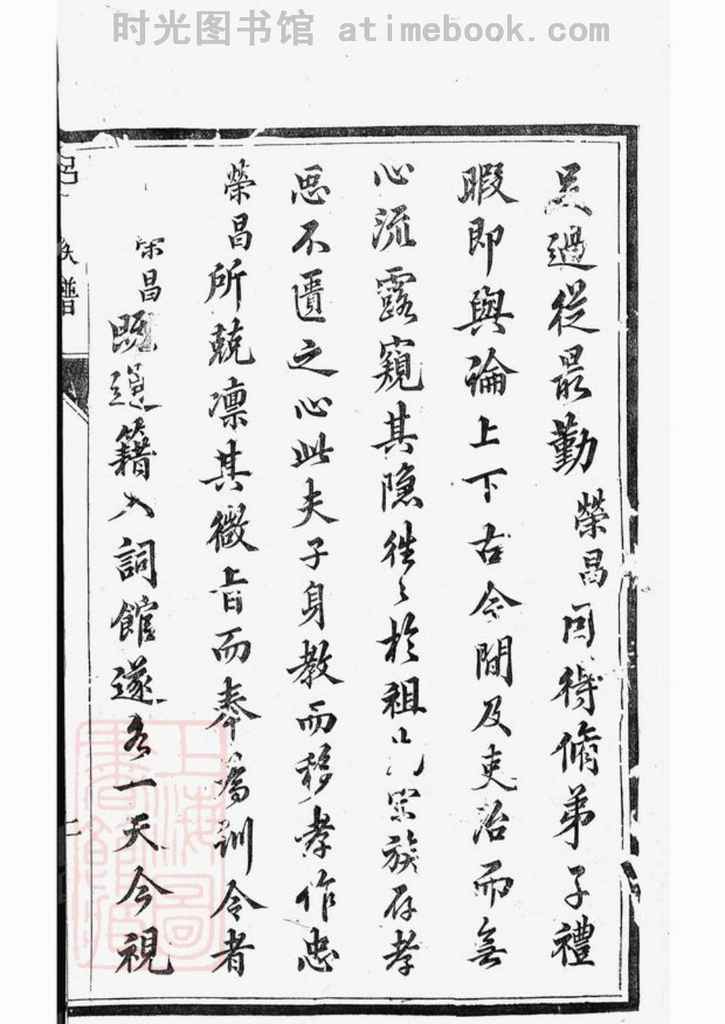 时光图书馆 atimebook.com
足過從最勤榮昌因得脩弟子禮
暇即與論上下古今間及吏治而無
心流露窺其隱徃〻於祖宗族存孝
思不匱之心此夫子身教而移孝作忠
榮昌所兢凛其微旨而奉為訓令者
榮昌既通籍入詞館遂各一天今視
呂 族譜
二
上海圖書館藏